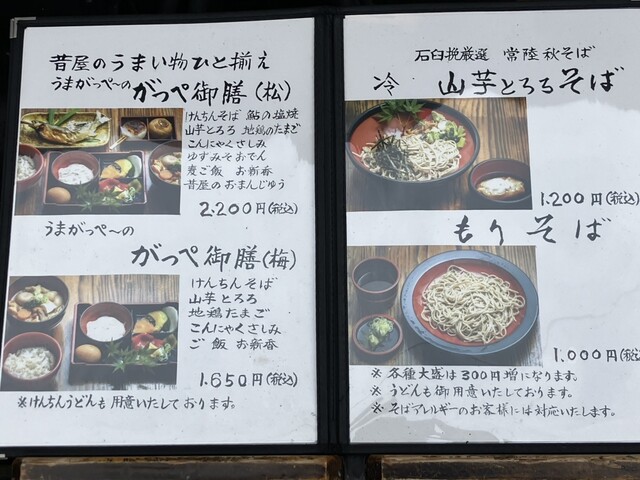 昔屋のうまい物ひと揃え
うまがっぺ〜の がっぺ御膳(松)
けんちんそば 鮎の塩焼
山芋とろろ 地鶏のたまご
こんにゃくさしみ
ゆずみそおでん
麦ご飯 お新香
昔屋のおまんじゅう
2.200円(税込)
うまがっぺ〜の
がっぺ御膳(梅)
けんちんそば
山芋とろろ
地鶏たまご
こんにゃくさしみ
ご飯 お新香
1.650円(税込)
※けんちんうどんも用意いたしております。
石臼挽厳選 常陸秋そば
冷 山芋とろろそば
1.200円(税込)
もりそば
1.000円(税込)
※ 各種大盛は300円増になります。
※ うどんも御用意いたしております。
※ そばアレルギーのお客様には対応いたします。